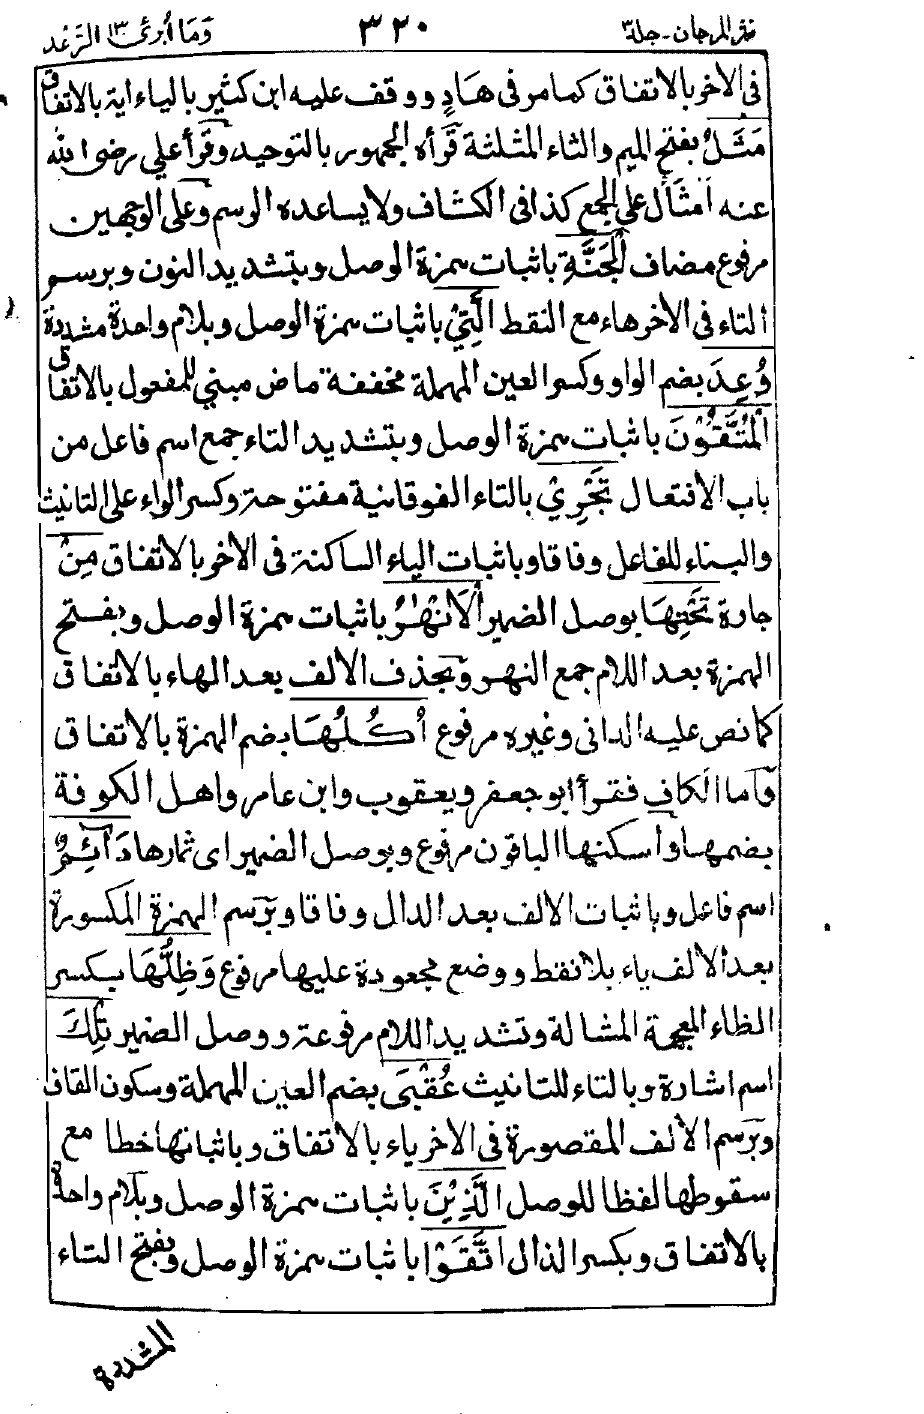 نثر المرجان - جلد٣ ٣٢٠ وَمَا أُبَرِّئُ ١٣ الرَّعْد
فى الاخر بالاتفاق كما مر فى هَادٍ ووقف عليه ابن كثير بالياء اية بالاتفاق
مَثَلُ بفتح الميم والثاء المثلثة قرأه الجمهور بالتوحيد وقرأ علي رضى الله
عنه اَمْثَال على الجمع كذا فى الكشاف ولا يساعده الرسم وعلى الوجهين
مرفوع مضاف الْجَنَّةِ باثبات همزة الوصل وبتشديد النون وبرسم
التاء فى الاخر هاء مع النقط الَّتِيْ باثبات همزة الوصل وبلام واحدة مشددة
وُعِدَ بضم الواو وكسر العين المهملة مخففة ماض مبني للمفعول بالاتفاق
الْمُتَّقُوْنَ باثبات همزة الوصل وبتشديد التاء جمع اسم فاعل من
باب الافتعال تَجْرِيْ بالتاء الفوقانية مفتوحة وكسر الراء على التانيث
والبناء للفاعل وفاقا وباثبات الياء الساكنة فى الاخر بالاتفاق مِنْ
جارة تَحْتِهَا بوصل الضمير الْاَنْهٰرُ باثبات همزة الوصل وبفتح
الهمزة بعد اللام جمع النهر وبحذف الالف بعد الهاء بالاتفاق
كما نص عليه الدانى وغيره مرفوع اُكُلُهَا بضم الهمزة بالاتفاق
وَاما الكاف فقرأ ابو جعفر ويعقوب وابن عامر واهل الكوفة
بضمها واسكنها الباقون مرفوع وبوصل الضمير اى ثمارها دَآئِمٌ
اسم فاعل وباثبات الالف بعد الدال وفاقا وبرسم الهمزة المكسورة
بعد الالف ياء بلا نقط ووضع مجعودة عليها مرفوع وَظِلُّهَا بكسر
الظاء المعجمة المشالة وتشديد اللام مرفوعة ووصل الضمير تِلْكَ
اسم اشارة وبالتاء للتانيث عُقْبَى بضم العين المهملة وسكون القاف
وبرسم الالف المقصورة فى الاخر ياء بالاتفاق وباثباتها خطا مع
سقوطها لفظا للوصل الَّذِيْنَ باثبات همزة الوصل وبلام واحدة
بالاتفاق وبكسر الذال اتَّقَوْا باثبات همزة الوصل وبفتح التاء
المشددة